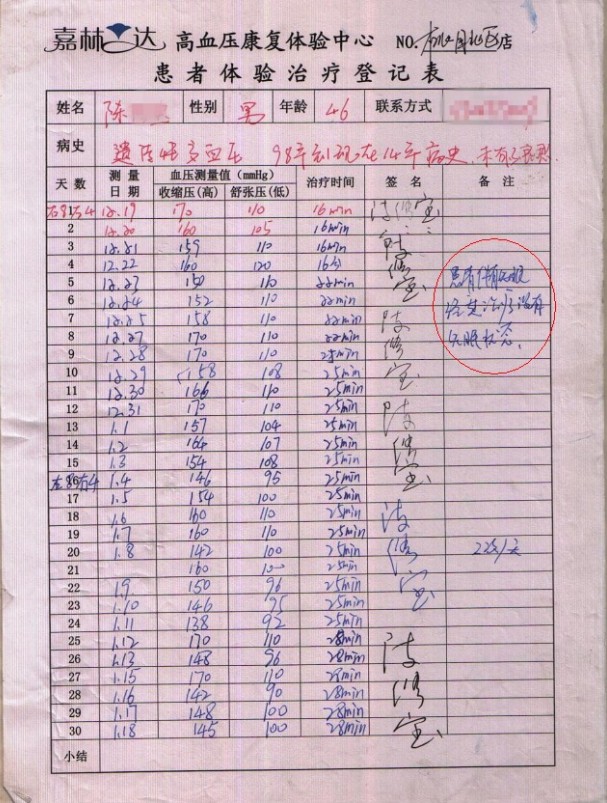 嘉林 达 高血压康复体验中心 NO. 店
患者体验治疗登记表
姓名 陈 性别 男 年龄 46 联系方式
病史 遗传 高血压 98年到现在14年病史
天数 测量日期 血压测量值(mmHg) 收缩压(高) 舒张压(低) 治疗时间 签名 备注
12.19 170 110 16min
2 12.20 160 105 16min
3 12.21 159 110 16min
4 12.22 160 120 16
5 12.23 150 110 22min
6 12.24 152 110 22min
7 12.25 158 110 22min
8 12.27 170 110 22min
9 12.28 170 110 25min
10 12.29 158 108 25min
11 12.30 166 110 25min
12 12.31 170 110 25min
13 1.1 157 104 25min
14 1.2 164 107 25min
15 1.3 154 108 25min
1.4 146 95 25min
17 1.5 154 100 25min
18 1.6 160 110 25min
19 1.7 160 110 25min
20 1.8 142 100 25min 2次/天
21 160 100 25min
22 1.9 150 96 25min
23 1.10 146 95 25min
24 1.11 138 92 25min
25 1.12 170 110 28min
26 1.13 148 96 28min
27 1.15 170 110 28min
28 1.16 142 90 28min
29 1.17 148 100 28min
30 1.18 145 100 28min
小结